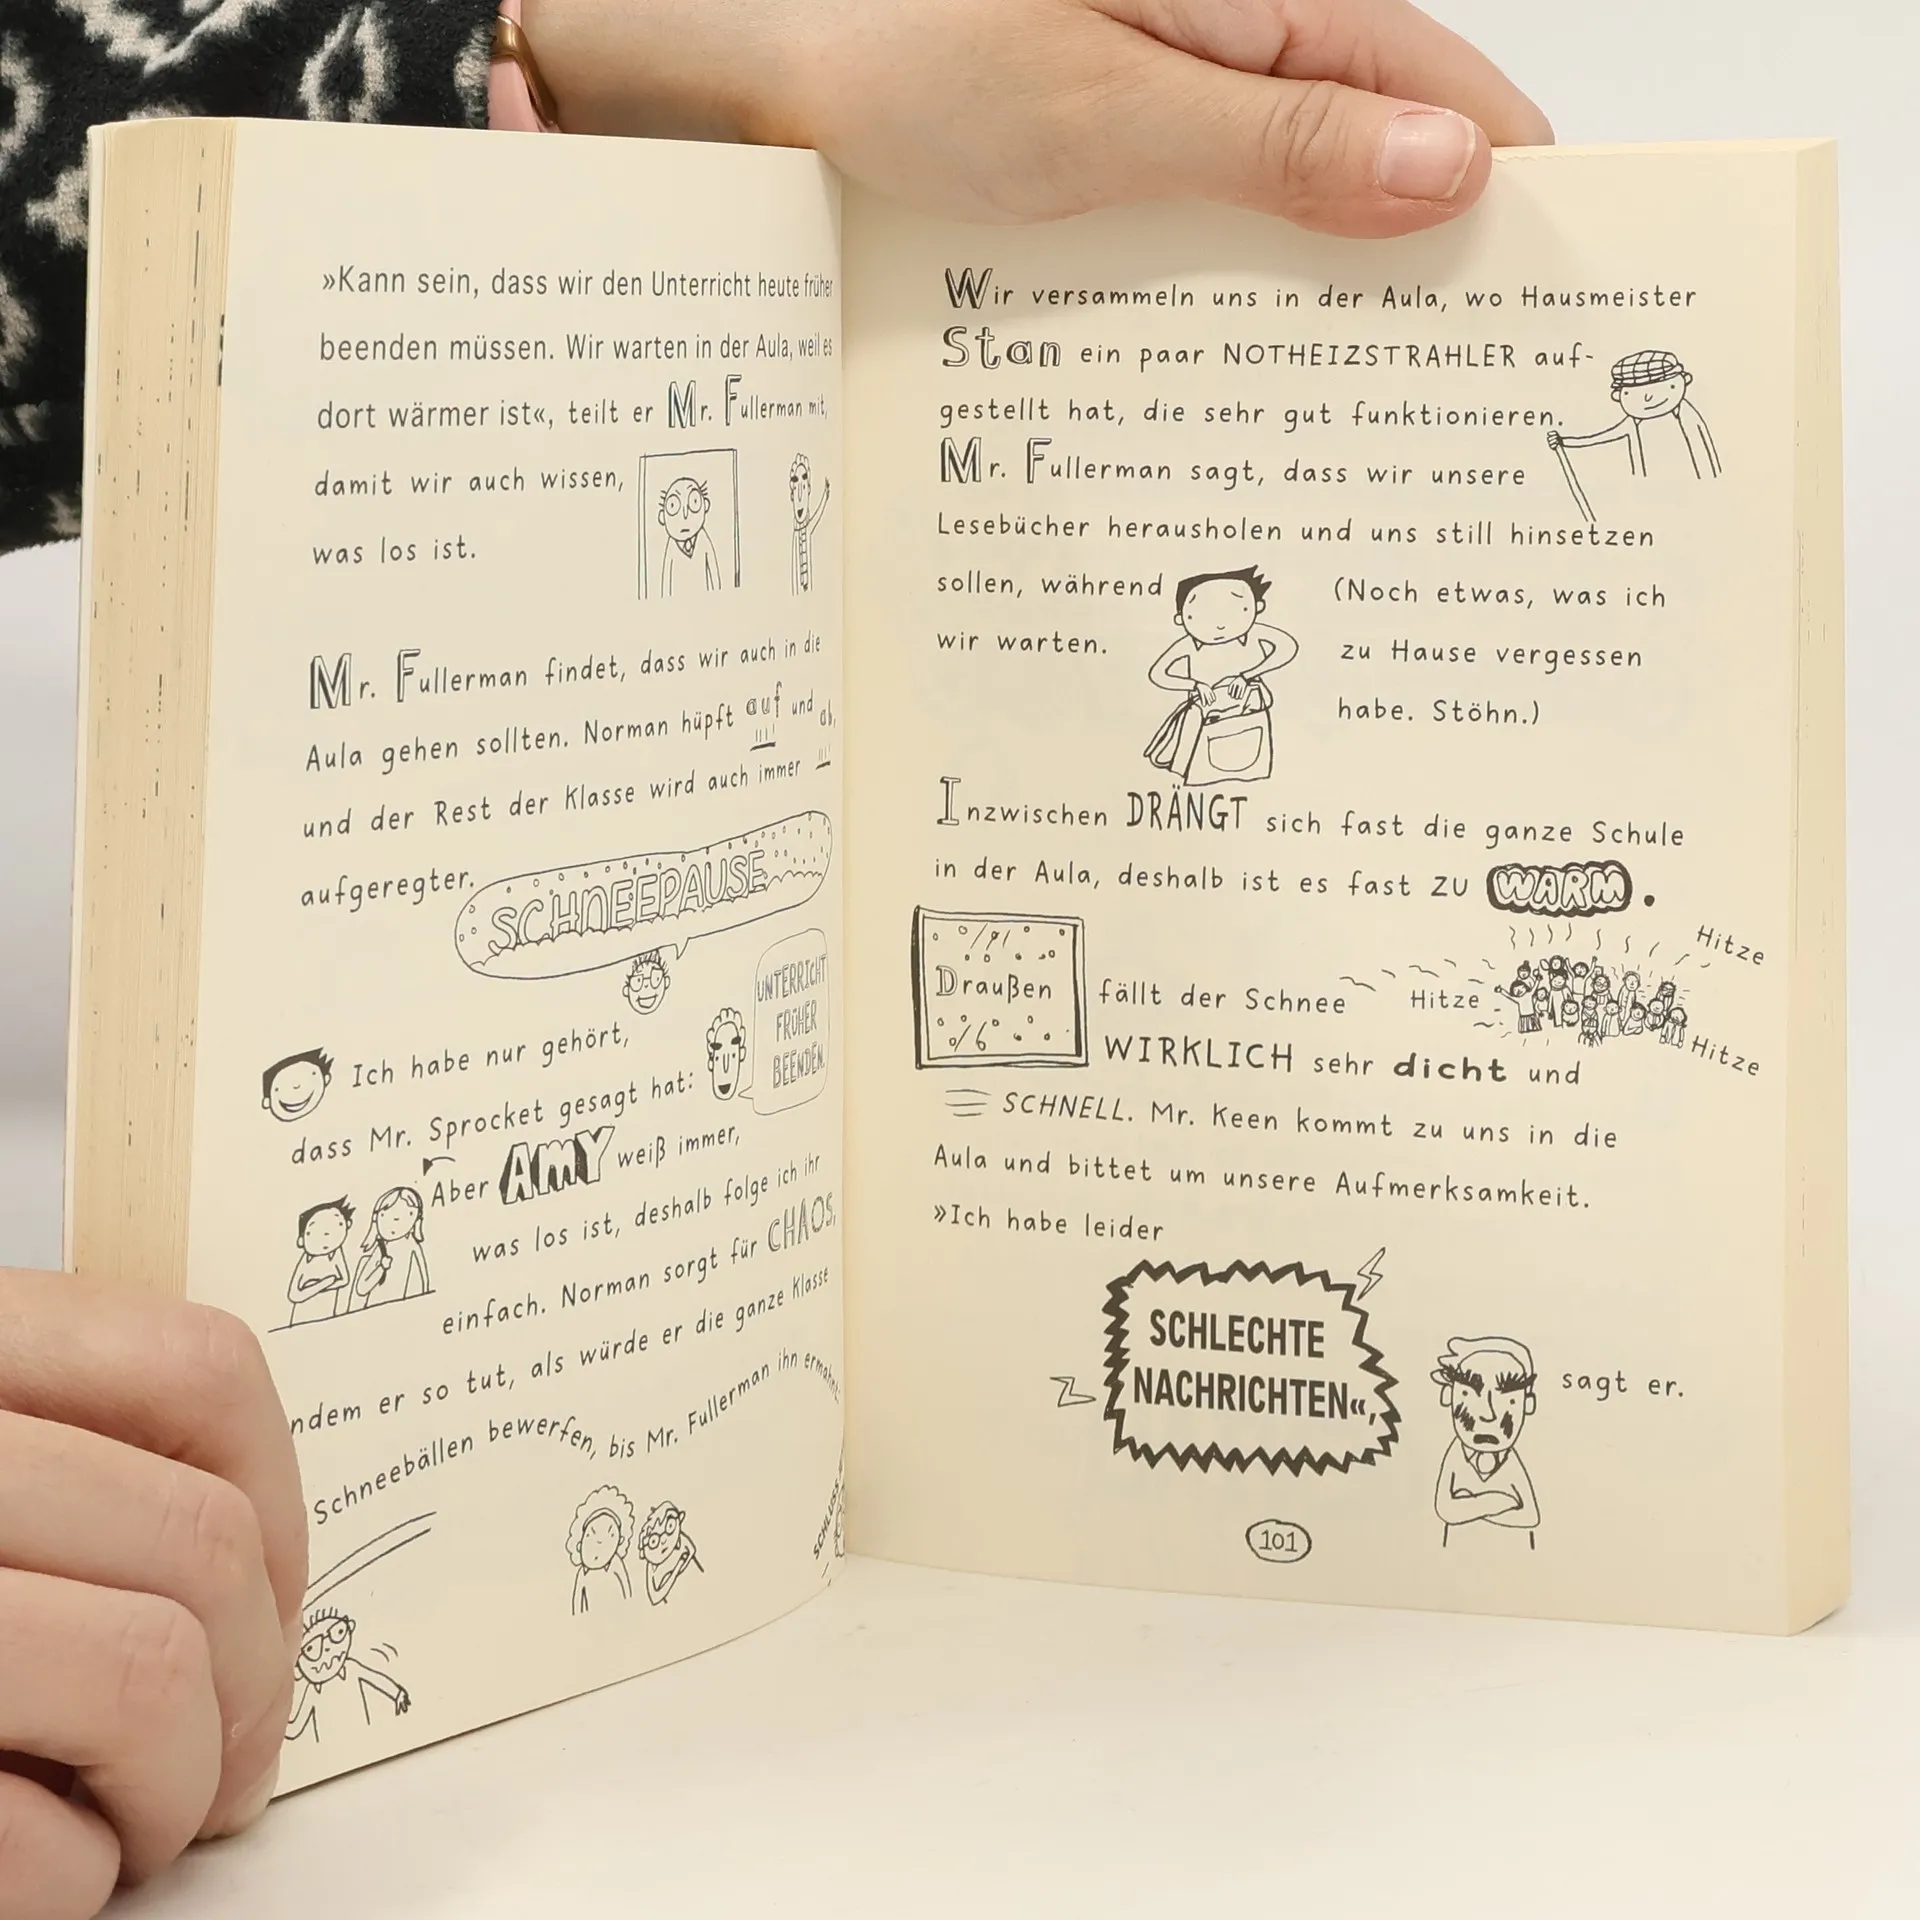 »Kann sein, dass wir den Unterricht heute früher
beenden müssen. Wir warten in der Aula, weil es
dort wärmer ist«, teilt er Mr. Fullerman mit,
damit wir auch wissen,
was los ist.
Mr. Fullerman findet, dass wir auch in die
Aula gehen sollten. Norman hüpft auf und ab,
und der Rest der Klasse wird auch immer
aufgeregter.
SCHNEEPAUSE
Ich habe nur gehört,
dass Mr. Sprocket gesagt hat:
UNTERRICHT
FRÜHER
BEENDEN.
Aber AMY weiß immer,
was los ist, deshalb folge ich ihr
einfach. Norman sorgt für CHAOS,
indem er so tut, als würde er die ganze Klasse
Schneebällen bewerfen, bis Mr. Fullerman ihn ermahnt.
SCHLUSS
Wir versammeln uns in der Aula, wo Hausmeister
Stan ein paar NOTHEIZSTRAHLER auf-
gestellt hat, die sehr gut funktionieren.
Mr. Fullerman sagt, dass wir unsere
Lesebücher herausholen und uns still hinsetzen
sollen, während
wir warten.
(Noch etwas, was ich
zu Hause vergessen
habe. Stöhn.)
Inzwischen DRÄNGT sich fast die ganze Schule
in der Aula, deshalb ist es fast zu WARM.
Draußen fällt der Schnee
Hitze
Hitze
Hitze
WIRKLICH sehr dicht und
SCHNELL. Mr. Keen kommt zu uns in die
Aula und bittet um unsere Aufmerksamkeit.
»Ich habe leider
SCHLECHTE
NACHRICHTEN«,
sagt er.
101